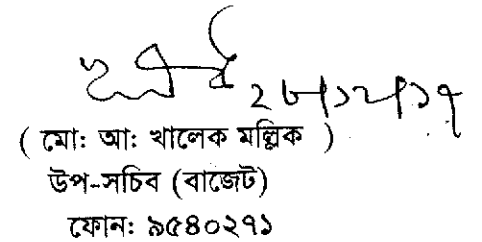 ২৮/১২/১৭
( মোঃ আঃ খালেক মল্লিক )
উপ-সচিব (বাজেট)
ফোন: ৯৫৪০২৭১